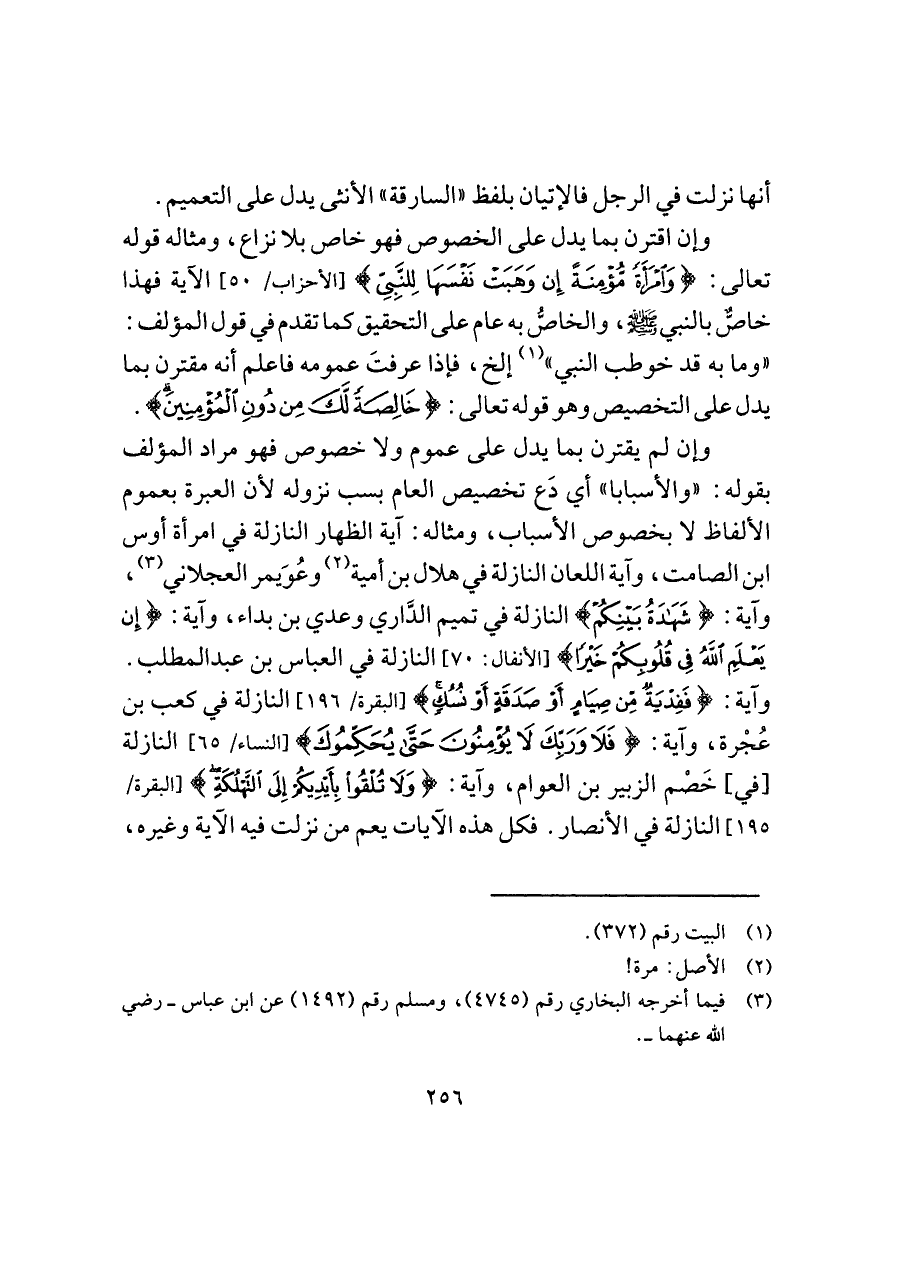 أنها نزلت في الرجل فالإتيان بلفظ «السارقة» الأنثى يدل على التعميم .
وإن اقترن بما يدل على الخصوص فهو خاص بلا نزاع، ومثاله قوله
تعالى: ﴿ وَٱمْرَأَةً مُّؤْمِنَةً إِن وَهَبَتْ نَفْسَهَا لِلنَّبِيِّ ﴾ [الأحزاب/ ٥٠] الآية فهذا
خاصٌّ بالنبي ﷺ، والخاصُّ به عام على التحقيق كما تقدم في قول المؤلف:
«وما به قد خوطب النبي»(١) إلخ، فإذا عرفتَ عمومه فاعلم أنه مقترن بما
يدل على التخصيص وهو قوله تعالى: ﴿ خَالِصَةً لَّكَ مِن دُونِ ٱلْمُؤْمِنِينَۗ ﴾ .
وإن لم يقترن بما يدل على عموم ولا خصوص فهو مراد المؤلف
بقوله: «والأسبابا» أي دَع تخصيص العام بسب نزوله لأن العبرة بعموم
الألفاظ لا بخصوص الأسباب، ومثاله: آية الظهار النازلة في امرأة أوس
ابن الصامت، وآية اللعان النازلة في هلال بن أمية(٢) وعُوَيمر العجلاني(٣)،
وآية: ﴿ شَهَٰدَةُ بَيْنِكُمْ ﴾ النازلة في تميم الدَّاري وعدي بن بداء، وآية: ﴿ إِن
يَعْلَمِ ٱللَّهُ فِى قُلُوبِكُمْ خَيْرًا ﴾ [الأنفال: ٧٠] النازلة في العباس بن عبدالمطلب.
وآية: ﴿ فَفِدْيَةٌ مِّن صِيَامٍ أَوْ صَدَقَةٍ أَوْ نُسُكٍۚ ﴾ [البقرة/ ١٩٦] النازلة في كعب بن
عُجْرة، وآية: ﴿ فَلَا وَرَبِّكَ لَا يُؤْمِنُونَ حَتَّىٰ يُحَكِّمُوكَ ﴾ [النساء/ ٦٥] النازلة
[في] خَصْم الزبير بن العوام، وآية: ﴿ وَلَا تُلْقُوا۟ بِأَيْدِيكُمْ إِلَى ٱلتَّهْلُكَةِۖ ﴾ [البقرة/
١٩٥] النازلة في الأنصار. فكل هذه الآيات يعم من نزلت فيه الآية وغيره،
(١) البيت رقم (٣٧٢).
(٢) الأصل: مرة!
(٣) فيما أخرجه البخاري رقم (٤٧٤٥)، ومسلم رقم (١٤٩٢) عن ابن عباس ـ رضي
الله عنهما ـ.
٢٥٦